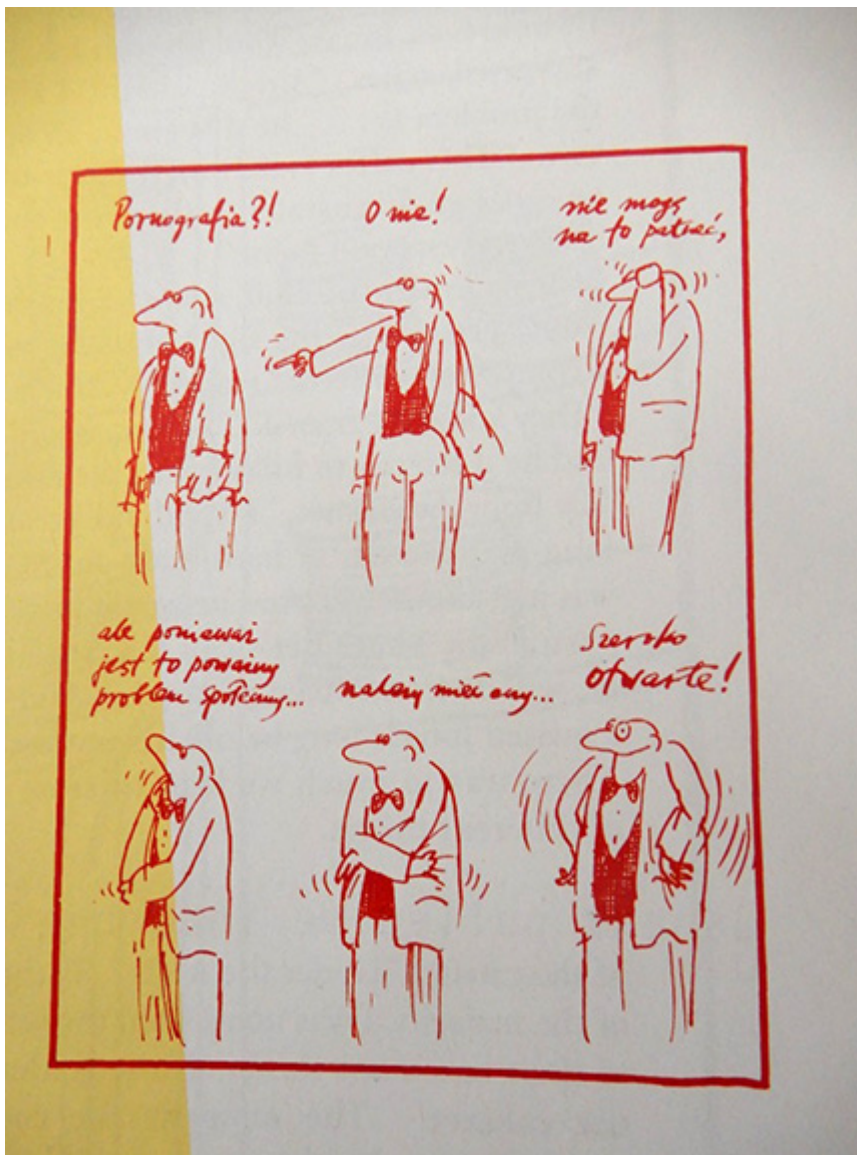 Pornografia?!
O nie!
nie mogę
na to patrzeć,
ale ponieważ
jest to poważny
problem społeczny...
należy mieć oczy...
Szeroko
otwarte!